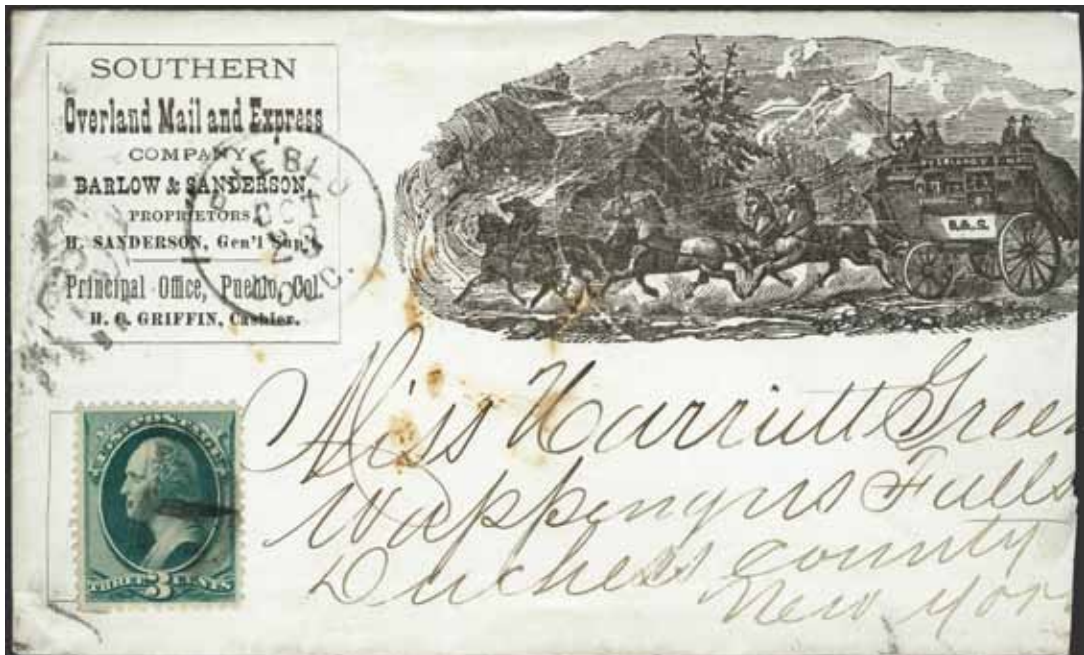 SOUTHERN
Overland Mail and Express
COMPANY
BARLOW & SANDERSON,
PROPRIETORS
H. SANDERSON, Gen'l Sup't.
Principal Office, Pueblo, Col.
H. C. GRIFFIN, Cashier.
PUEBLO
OCT
23
COL.
B. & S.
Miss Harriett Green
Wappengers Falls
Duchess county
New York
THREE 3 CENTS